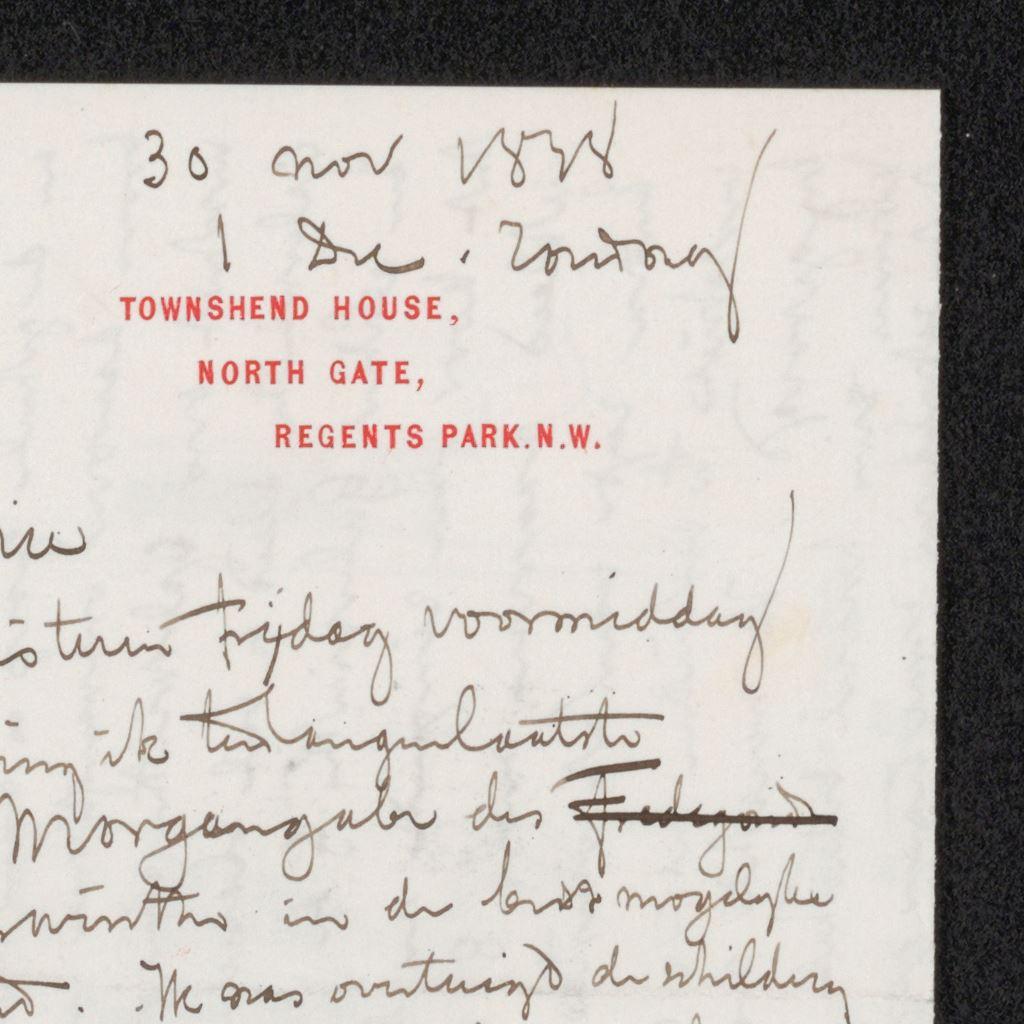 30 nov 1878
1 Dec. Zondag
TOWNSHEND HOUSE,
NORTH GATE,
REGENTS PARK.N.W.
isteren frijdag voormiddag
ing ik ten langenlaatste
Morgangabe des Fredegond
swintha in de best mogelyke
Ik was overtuigd de schildery